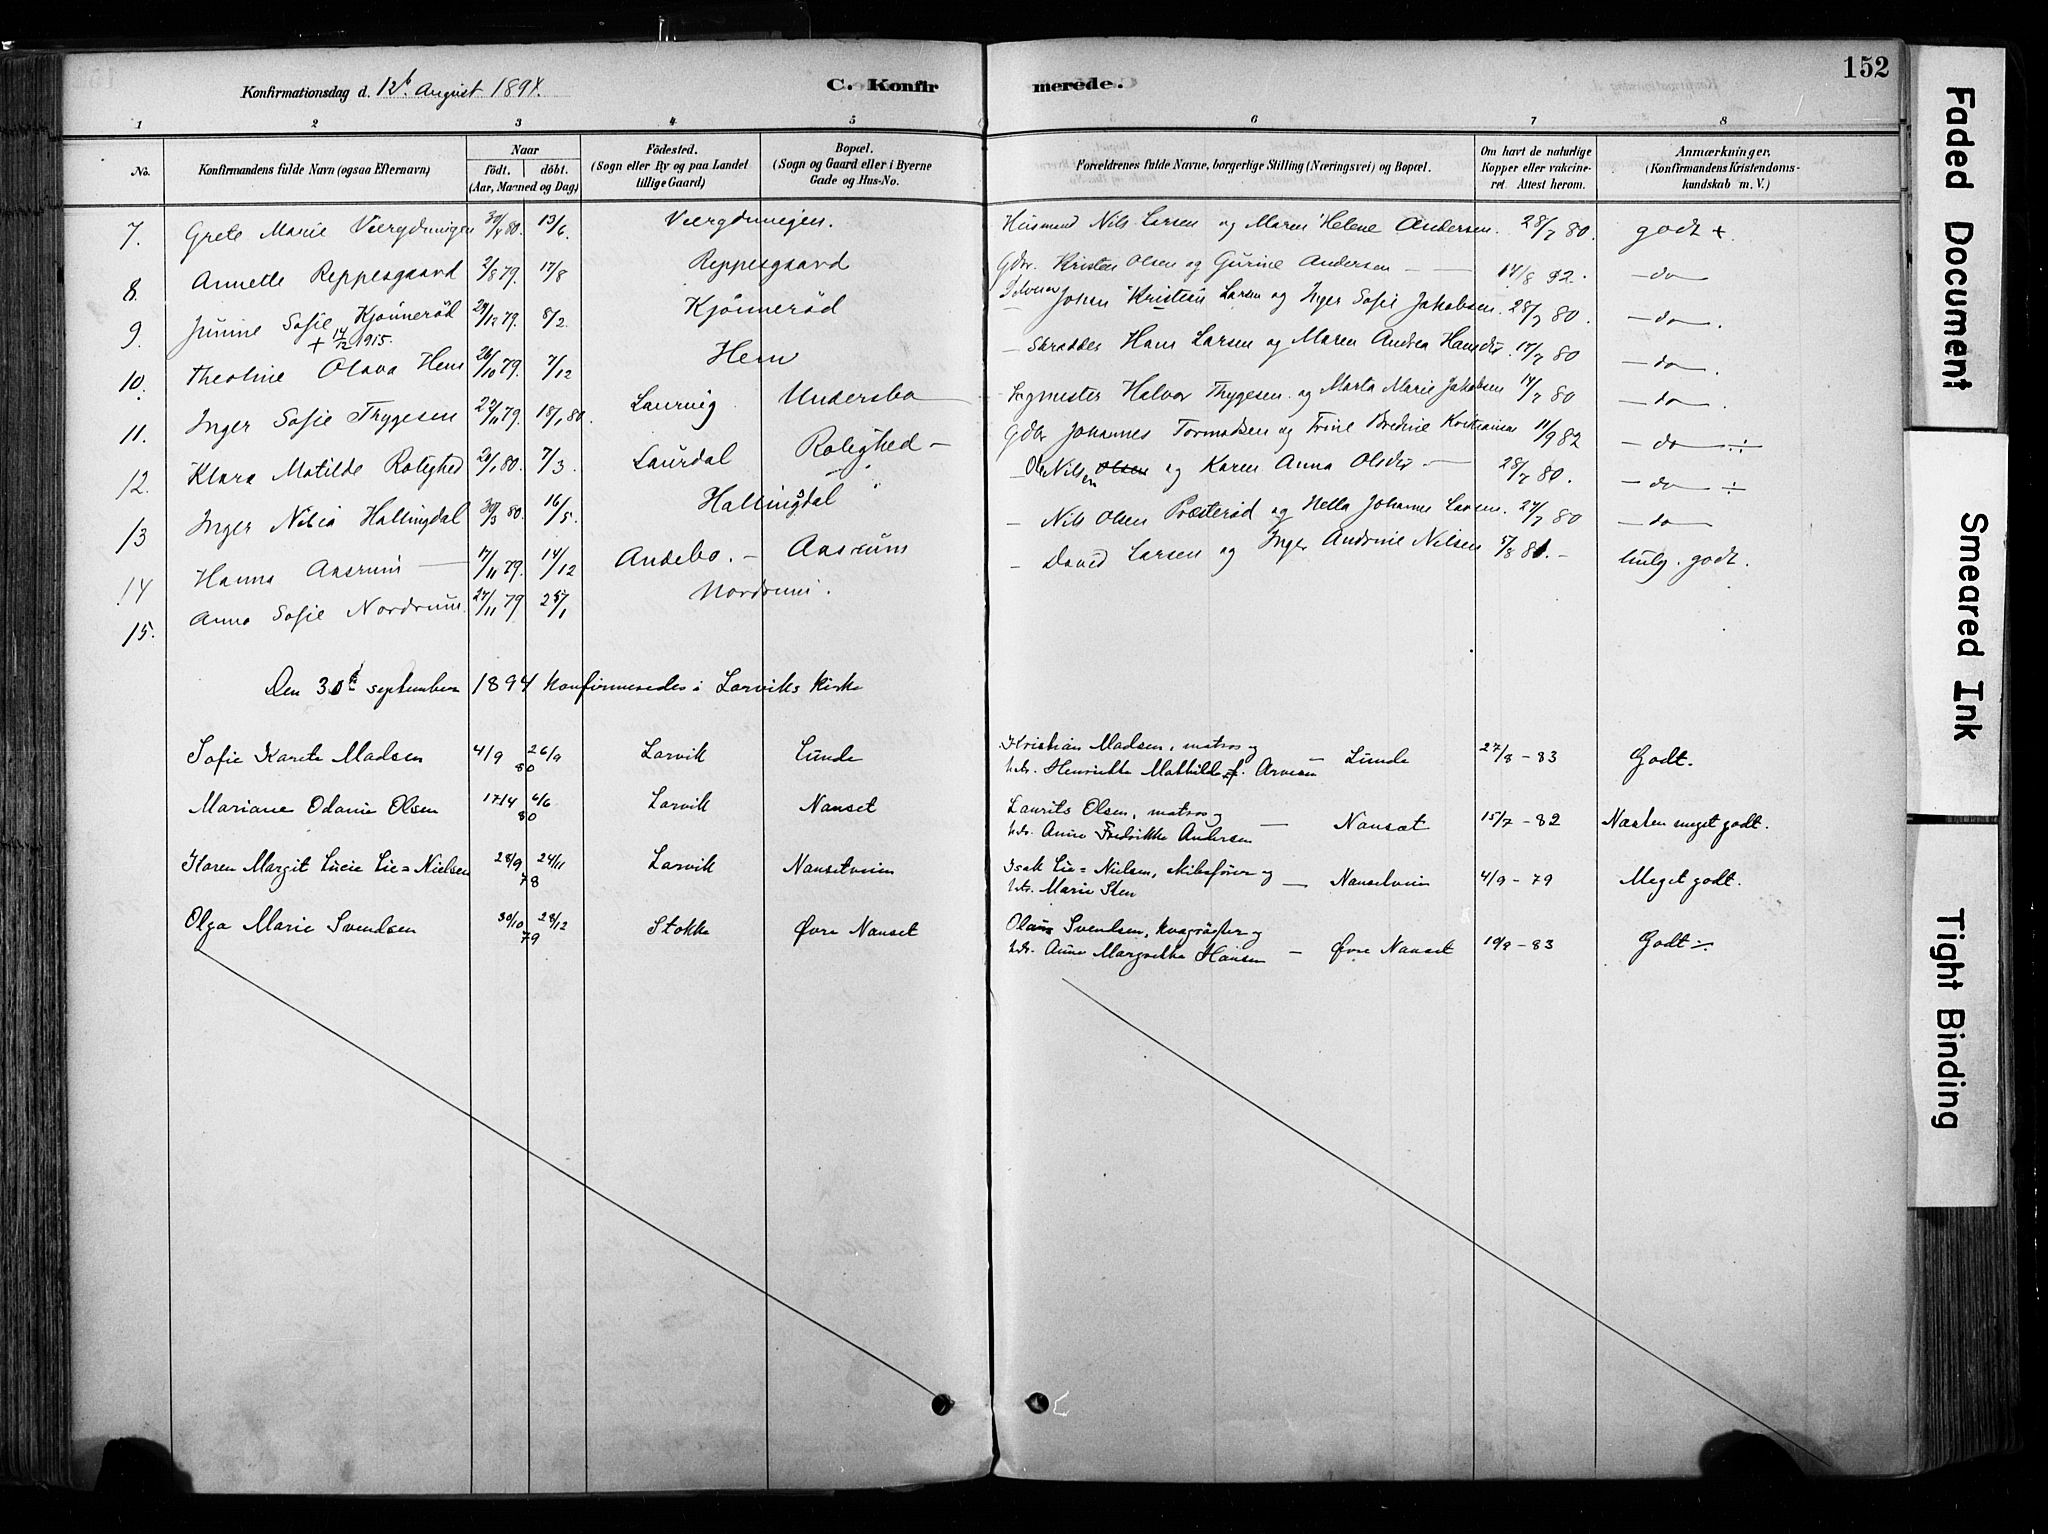 152
Konfirmationsdag d. 12te August 1894.
C. Konfir merede.
1 2 3 4 5 6 7 8
No. Konfirmandens fulde Navn (ogsaa Efternavn) Naar födt. döbt. (Aar, Maaned og Dag) Födested. (Sogn eller By og paa Landet tillige Gaard) Bopæl. (Sogn og Gaard eller i Byerne Gade og Hus-No. Forældrenes fulde Navne, borgerlige Stilling (Næringsvei) og Bopæl. Om havt de naturlige Kopper eller vakcineret. Attest herom. Anmærkninger. (Konfirmandens Kristendomskundskab m. V.)
7. Grete Marie 80. 13/6. Husmand Nils Larsen og Maren Helene Andersen. 28/7 80. godt +
8. Annette Reppesgaard 2/8 79. 17/8 Reppesgaard Gdbr. Kristen Olsen og Gurine Andersen — 14/8 92. — do —
9. Junine Sofie Kjönnerød 29/12 79. 8/2. Kjönnerød Johan Kristian Larsen og Inger Sofie Jakobsen. 28/7 80. — do —.
+ 14/12 1915.
10. Theoline Olava Hem 26/10 79. 7/12 Hem — Skrædder Hans Larsen og Maren Andrea Hansdtr. 17/7 80 — do —.
11. Inger Sofie Thygesen 79. 18/1 80. Laurvig Undersbo Sagmester Halvor Thygesen og Marta Marie Jakobsen 14/7 80 — do —.
12. Klara Matilde Rolighed 80. 7/3. Laurdal Rolighed — Gdbr Johannes Tormodsen og Trine Bredine Kristiansen 11/9 82 — do — ÷
13 Inger Nilia Hallingdal 30/3 80. 16/5. Hallingdal — Ole Nilsen Olsen og Karen Anna Olsdtr — 28/7 80. — do — ÷
14 Hanna Aasrum — 17/11 79. 14/12 Andebo. — Aasrum — Nils Olsen Præsterød og Nella Johanne Larsen. 24/7 80 — do —
15. Anna Sofie Nordrum. 27/11 79 25/1 Nordrum. — David Larsen og Inger Andrine Nilsen 5/8 81. — tmlg. godt.
Den 30te september 1894 konfirmeredes i Larviks kirke
Sofie Karete Madsen 4/9 26/9 80 Larvik Lunde Kristian Madsen, matros og — Lunde 27/8 - 83 Godt.
htr. Henriette Mathilde f. Arvesen
Mariane Odanie Olsen 17/4 6/6 80 Larvik Nanset Laurits Olsen, matros og — Nansæt 15/7 - 82 Næsten meget godt.
htr. Anne Fredrikke Andersen
Karen Margit Lucie Lie=Nielsen 28/9 24/11 78 Larvik Nansetveien Isak Lie=Nielsen, skibsfører og — Nansetveien 4/9 - 79 Meget godt.
htr. Marie Sten
Olga Marie Svendsen 30/10 28/12 79 Stokke Øvre Nanset Olaus Svendsen, og — Øvre Nanset 19/9 - 83 Godt ÷
htr. Anne Margrethe Hansen
Faded Document
Smeared Ink
Tight Binding